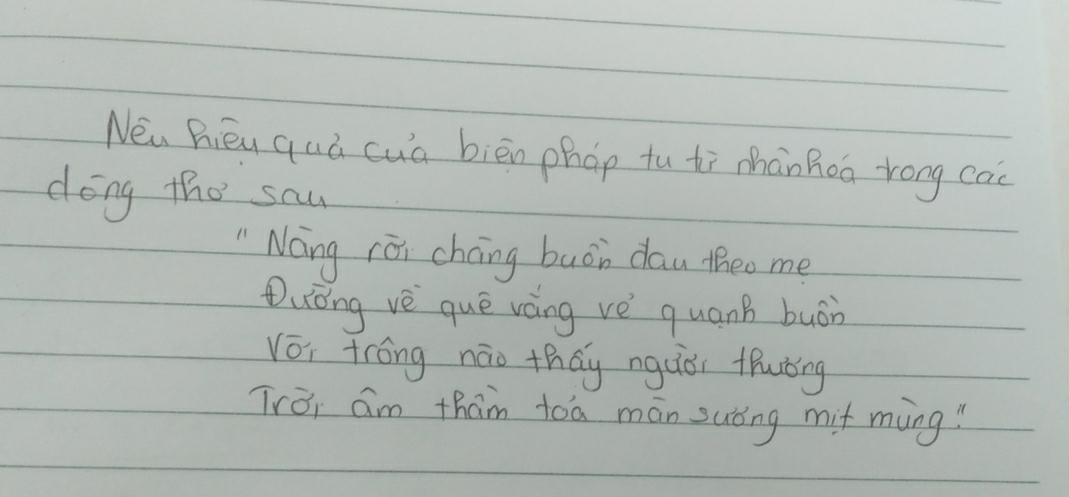 Nêu hiệu quả của biện pháp tu từ nhân hoá trong các
dòng thơ sau
"Nàng rời chàng buồn đau theo mẹ
Đường về quê vắng vẻ quạnh buồn
Vời trông nào thấy người thương
Trời âm thầm toả màn sương mịt mùng."